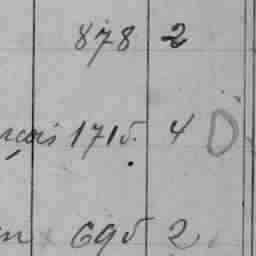 878 2
çois 1715. 4 D
n 695 2